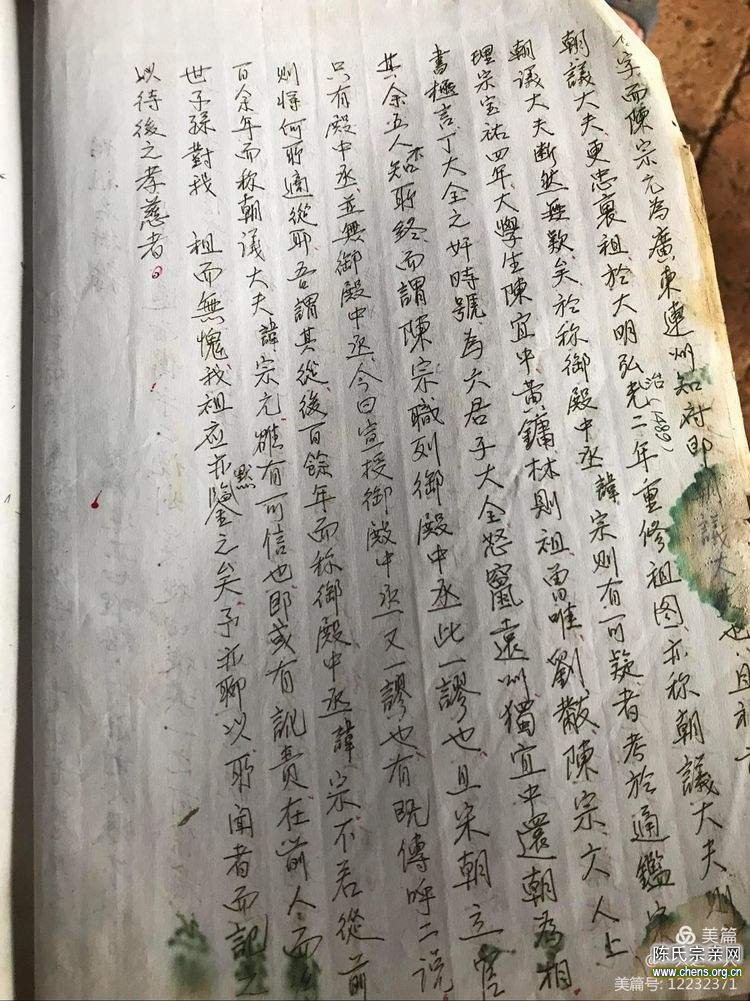 也且祖
字而陳宗元為廣東連州知府即朝議大夫則
朝議大夫更忠襄祖於大明弘治二年重修祖图亦称朝議大夫則
治(1489)
朝議大夫断然無欵矣於称御殿中丞諱宗則有可疑者考於通鑑宋
理宗宝祐四年大學生陳宜中黄鏞林則祖曽唯劉黻陳宗六人上
書極言丁大全之奸時號為六君子大全怒竄遠州獨宜中還朝為相
其余五人不知所終而謂陳宗職列御殿中丞此一謬也且宋朝立官
只有殿中丞並無御殿中丞今曰宣授御殿中丞又一謬也有既傳呼二説
則將何所適從耶吾謂其從後百餘年而称御殿中丞諱宗不若從前
百余年而称朝議大夫諱宗元雖有可信也即或有訿責在前人而後
世子孫對我 祖而無愧我祖应亦默鑒之矣予亦聊以所闻者而記之
以待後之孝慈者。
美篇
陈氏宗亲网
www.chens.org.cn
美篇号:12232371